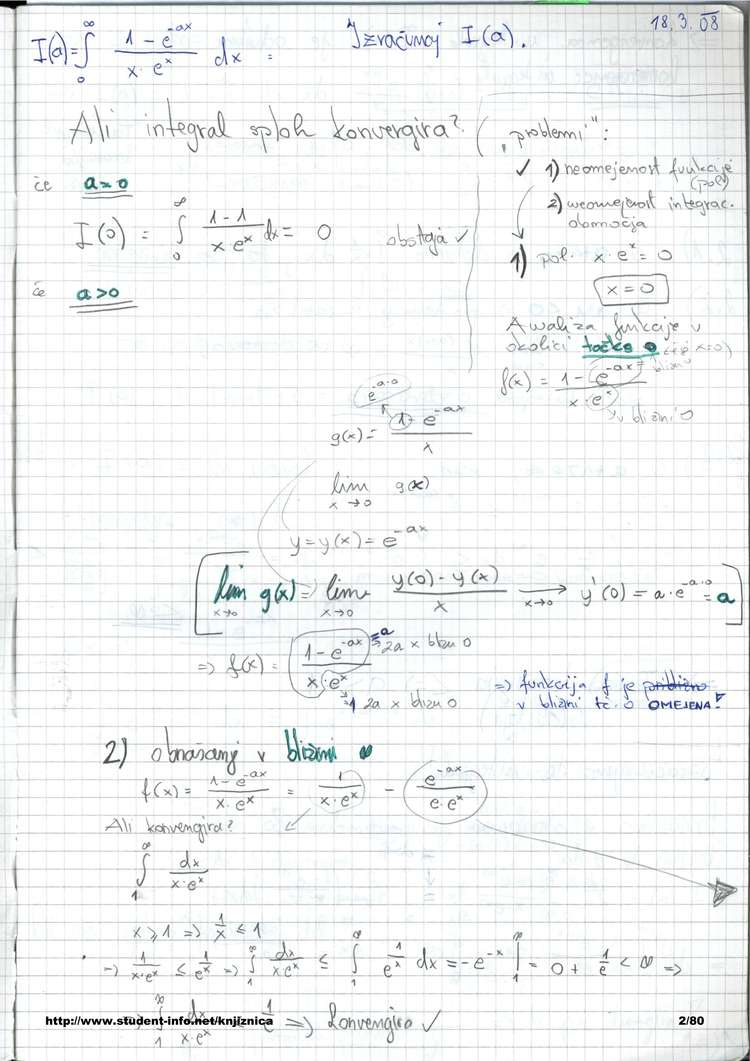 18. 3. 08
I(a) = ∫₀^∞ (1 - e^{-ax}) / (x · e^x) dx = Izračunaj I(a).
Ali integral sploh konvergira?
če a = 0
I(0) = ∫₀^∞ (1 - 1) / (x e^x) dx = 0 obstaja ✓
če a > 0
„problemi“:
✓ 1) neomejenost funkcije
(pol)
2) neomejenost integrac.
območja
1) pol. x · e^x = 0
x = 0
Analiza funkcije v
okolici točke 0 (x = 0)
f(x) = (1 - e^{-ax}) / (x · e^x)
v bližini 0
e^{-a·0}
g(x) = (1 - e^{-ax}) / x
lim_{x → 0} g(x)
y = y(x) = e^{-ax}
[ lim_{x→0} g(x) = lim_{x→0} (y(0) - y(x)) / x ⟶_{x→0} y'(0) = a · e^{-a·0} = a ]
⇒ f(x) = (1 - e^{-ax}) / (x · e^x) ≐ a za x blizu 0
≐ 1 za x blizu 0
⇒ funkcija f je približno
v bližini tč. 0 OMEJENA!
2) obnašanj v bližini ∞
f(x) = (1 - e^{-ax}) / (x · e^x) = 1 / (x · e^x) - e^{-ax} / (e · e^x)
Ali konvengira?
∫₁^∞ dx / (x · e^x)
x ≥ 1 ⇒ 1/x ≤ 1
⇒ 1/(x·e^x) ≤ 1/e^x ⇒ ∫₁^∞ dx/(x e^x) ≤ ∫₁^∞ e^{1/x} dx = -e^{-x} |₁^∞ = 0 + 1/e < ∞ ⇒
⇒ ∫₁^∞ dx/(x·e^x) 1/e ⇒ konvengira ✓
http://www.student-info.net/knjiznica
2/80